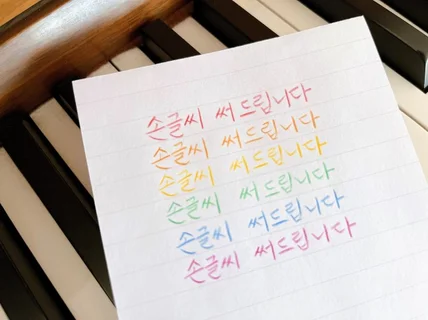 손글씨 써드립니다
손글씨 써드립니다
손글씨 써드립니다
손글씨 써드립니다
손글씨 써드립니다
손글씨 써드립니다